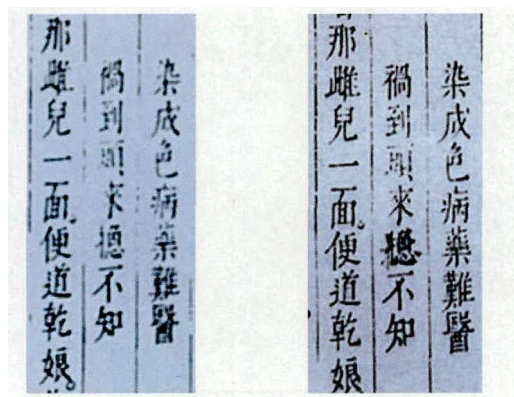 染成色病藥難醫
禍到頭來摠不知
那雌兒一面。便道乾娘。
染成色病藥難醫
禍到頭來摠不知
那雌兒一面。便道乾娘